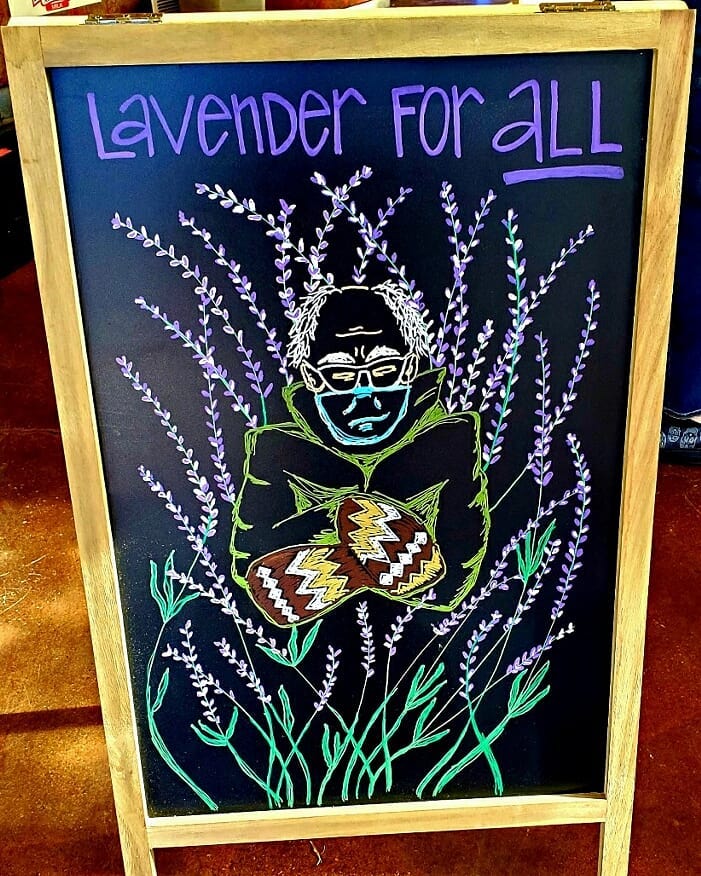 Lavender For aLL